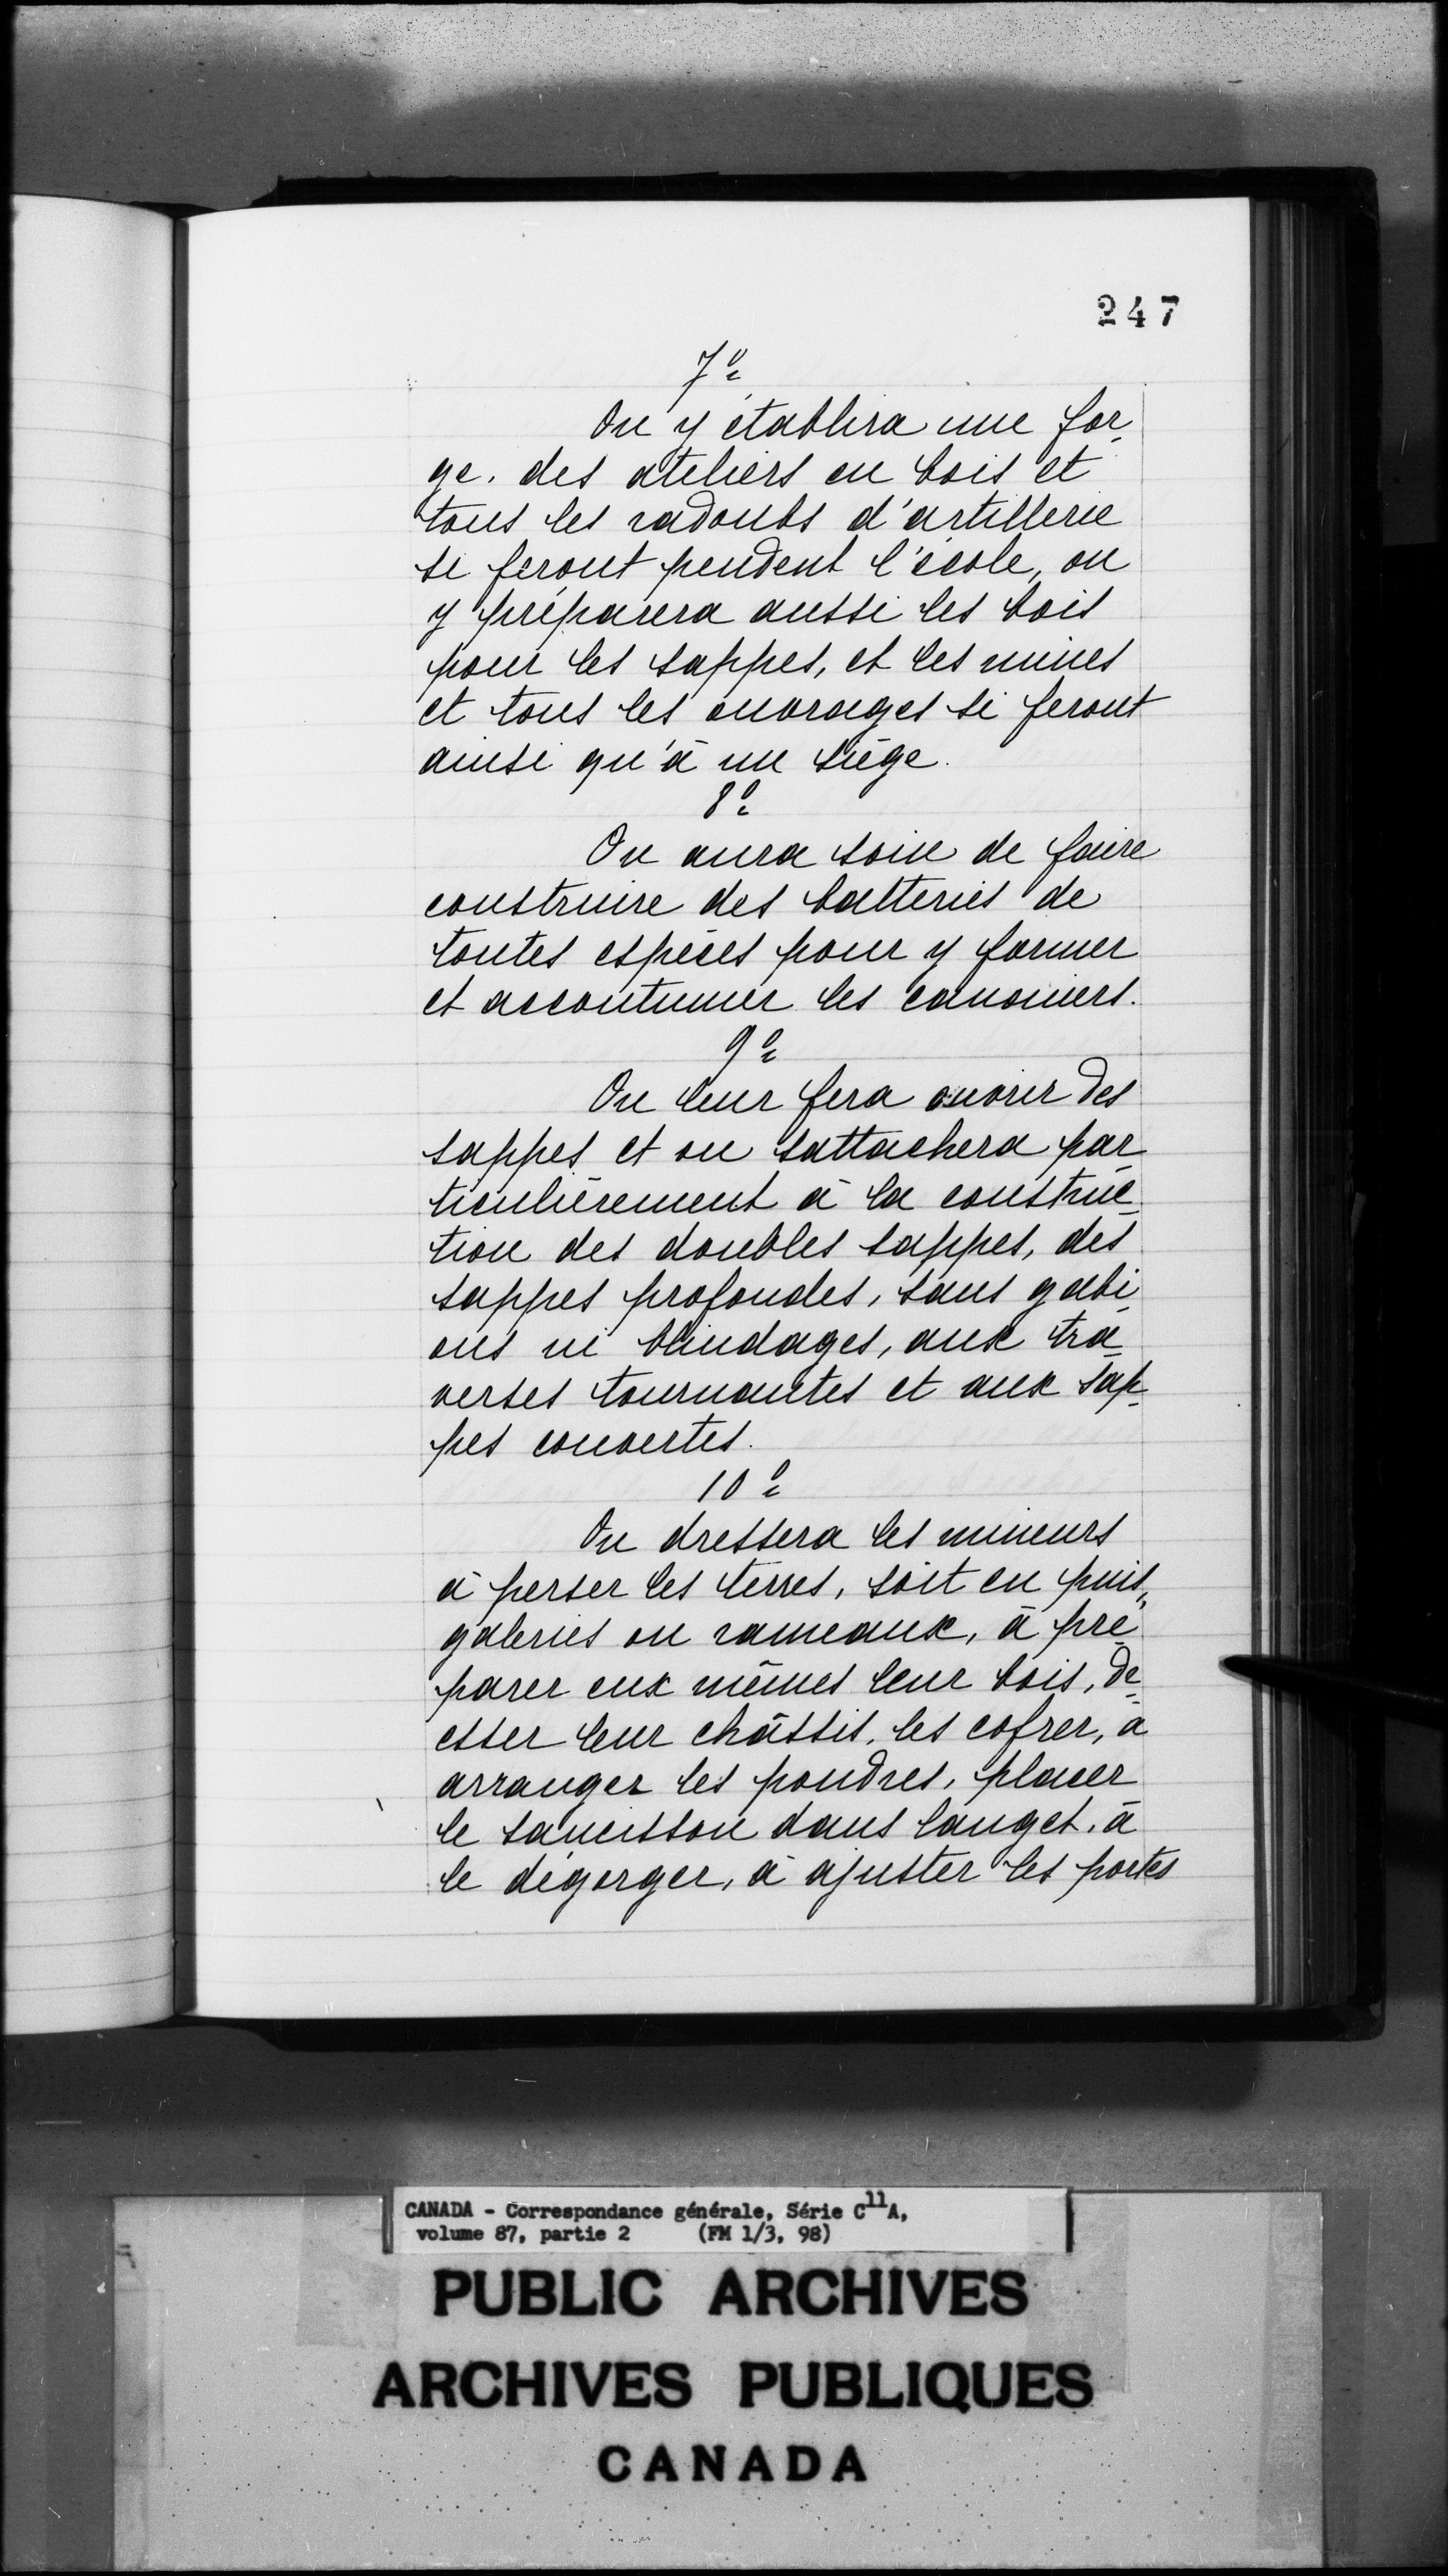 247
7º
On y établira une for-
ge. des ateliers en bois et
tous les radoubs d'artillerie
si feront pendent l'école, on
y préparera aussi les bois
pour les sappes, et les mines
et tous les ouvrages si feront
ainsi qu'à un siège.
8º
On aura soin de faire
construire des batteries de
toutes espèces pour y former
et accoutumer les canoniers.
9º
On leur fera ouvrir des
sappes et on sattachera par-
ticulièrement à la construc-
tion des doubles sappes, des
sappes profondes, sans gabi-
ons ni blindages, aux tra-
verses tournantes et aux sap-
pes couvertes.
10º
On dressera les mineurs
à perser les terres, soit en puis,
galeries ou rameaux, à pré-
parer eux mêmes leur bois, de-
esser leur châssis, les cofrer, à
arranger les poudres, placer
le saucisson dans lauget, à
le dégorger, à ajuster les portes
CANADA - Correspondance générale, Série C11A,
volume 87, partie 2 (FM 1/3, 98)
PUBLIC ARCHIVES
ARCHIVES PUBLIQUES
CANADA